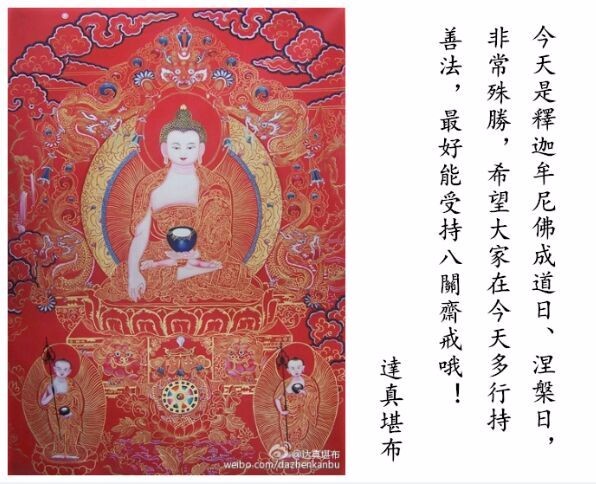 今天是釋迦牟尼佛成道日、涅槃日，
非常殊勝，希望大家在今天多行持
善法，最好能受持八關齋戒哦！
達真堪布
@达真堪布
weibo.com/dazhenkanbu